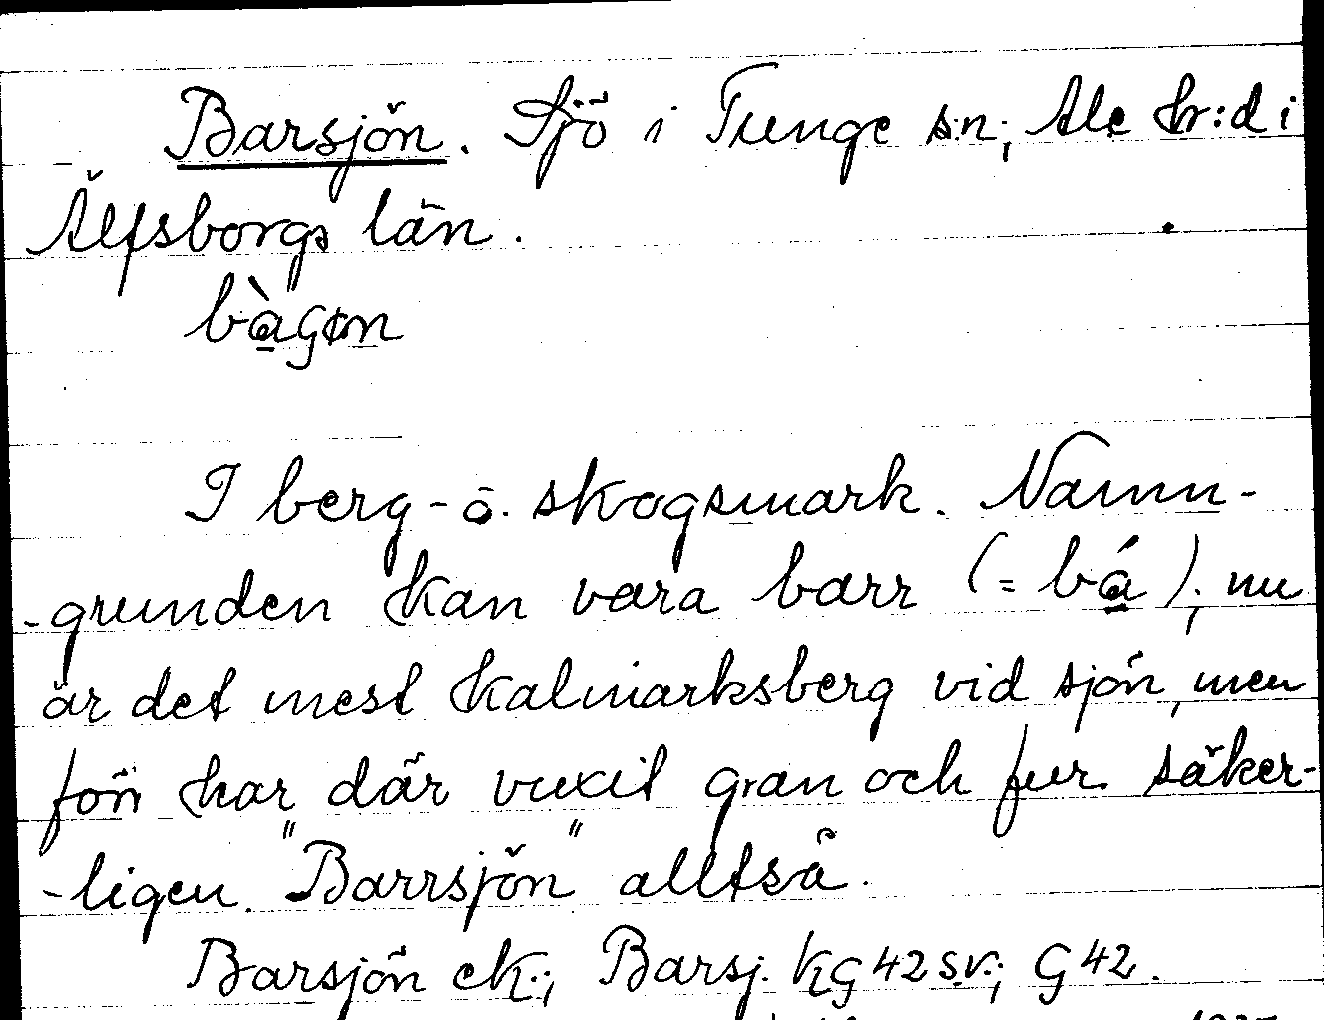 Barsjön. Sjö i Tunge sn; Ale hr:d i
Älfsborgs län.
I berg- o. skogsmark. Namn-
-grunden kan vara barr (= bá); nu
är det mest kalmarksberg vid sjön, men
förr har där vuxit gran och fur säker-
-ligen. "Barrsjön" alltså.
Barsjön ek.; Barsj. KG 42 sv.; G 42.